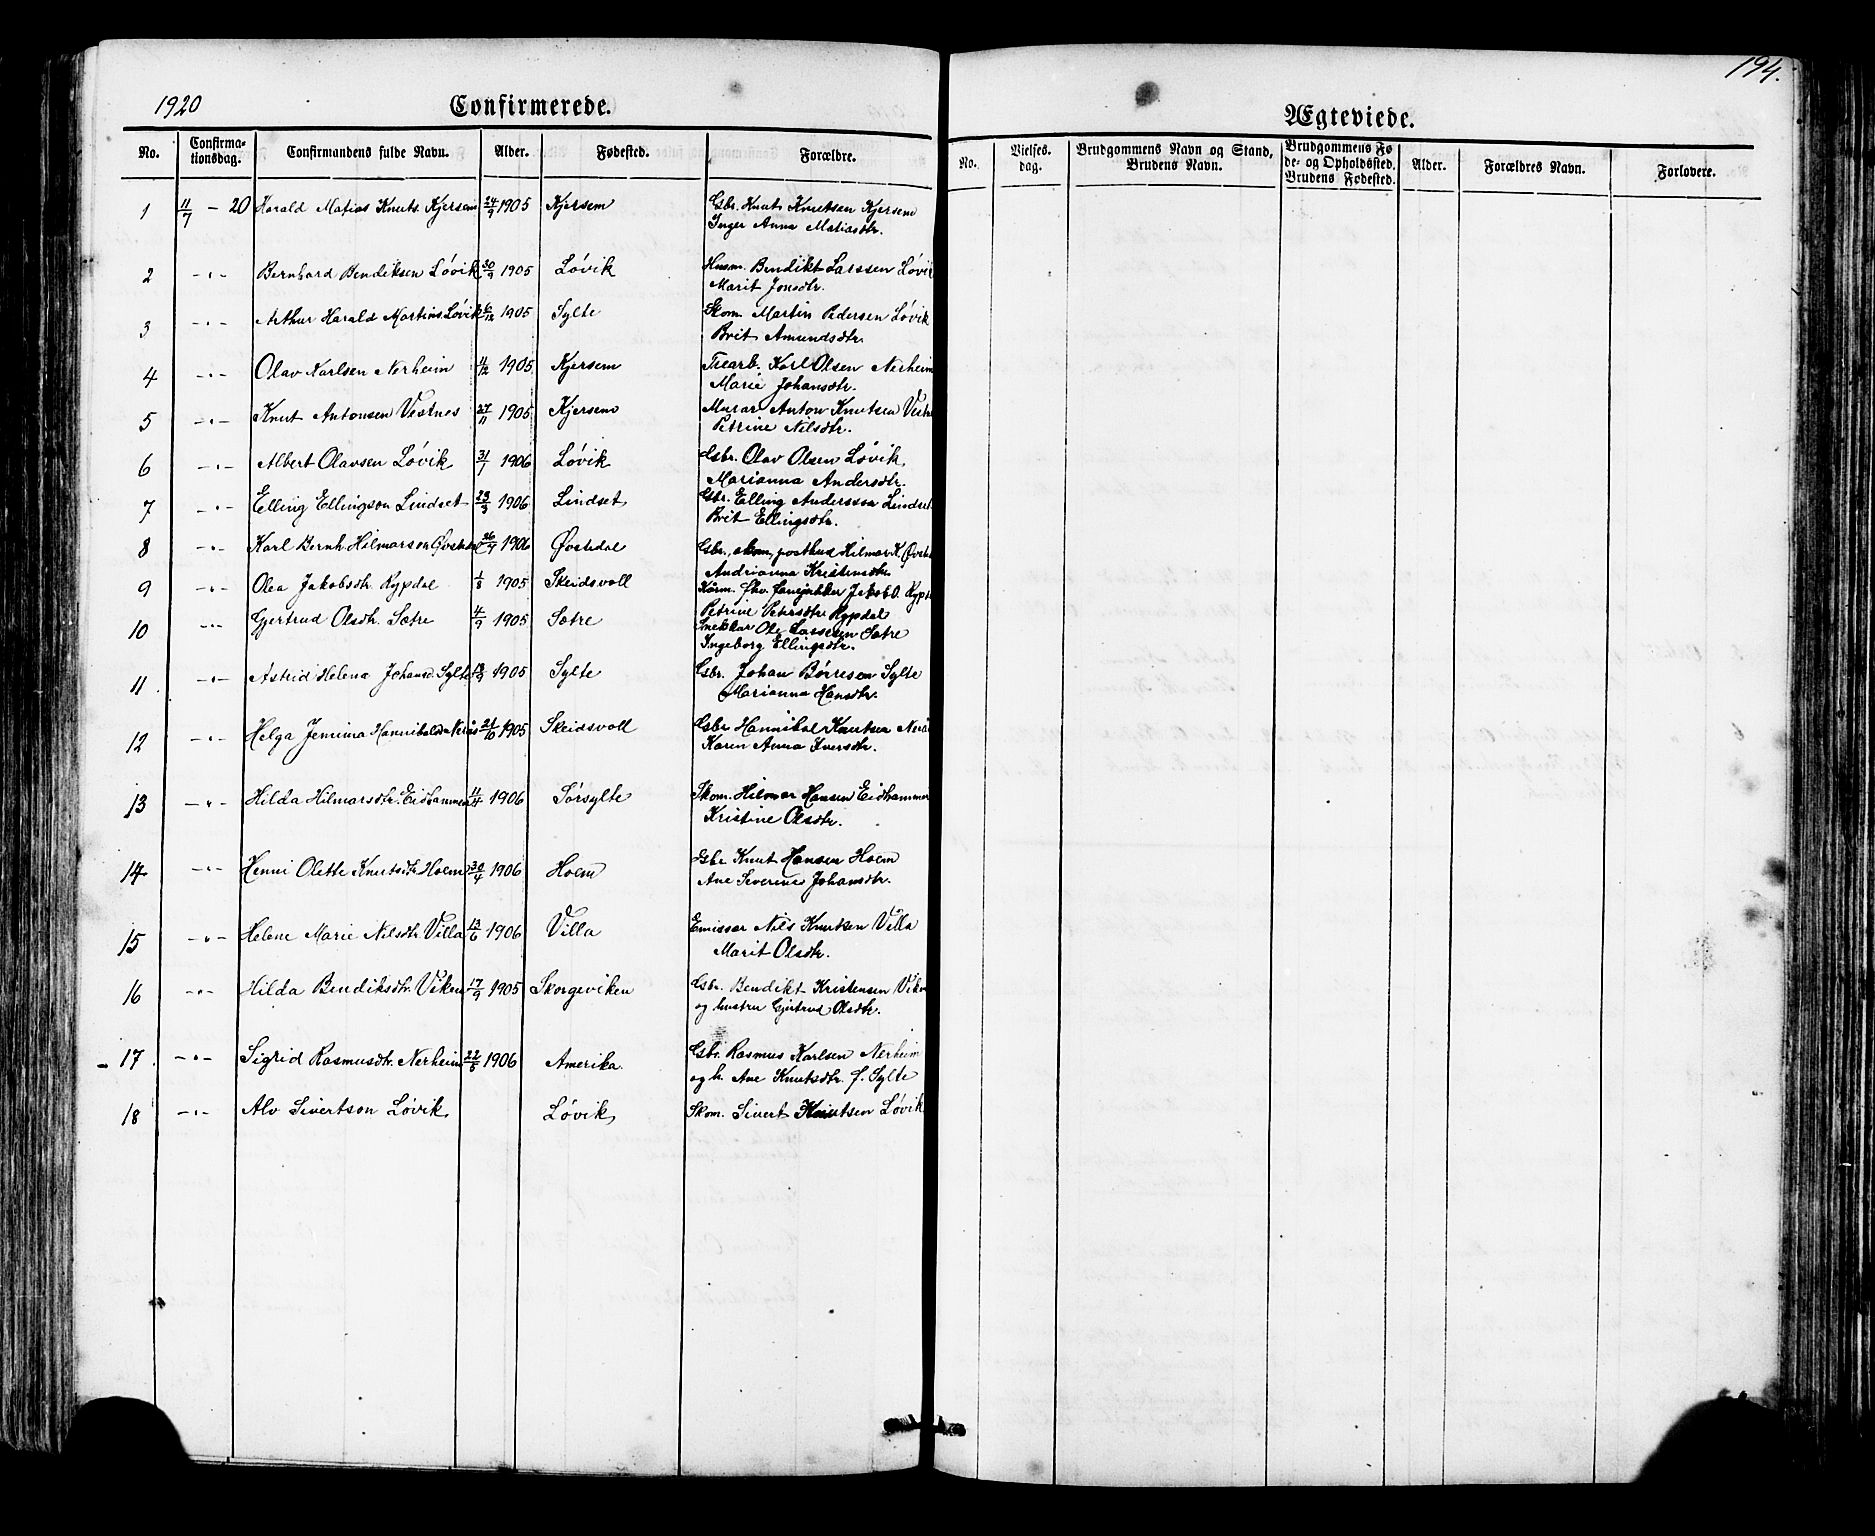 1920 Confirmerede.
No. Confirma-tionsdag. Confirmandens fulde Navn. Alder. Fødested. Forældre.
1 11/7 - 20 Harald Matias Knuts. Kjersem 24/9 1905 Kjersem Gbr. Knut Knutsen Kjersem
Inger Anna Matiasdtr.
2 -"- Bernhard Bendiksen Løvik 30/9 1905 Løvik Husm. Bendikt Larssen Løvik
Marit Jonsdtr.
3 -"- Arthur Harald Martins. Løvik 6/12 1905 Sylte Skom. Martin Pedersen Løvik
Brit Amundsdtr.
4 -"- Olav Karlsen Nerheim 11/12 1905 Kjersem Trearb. Karl Olsen Nerheim
Marie Johansdtr.
5 -"- Knut Antonsen Vestnes 27/11 1905 Kjersem Murar Anton Knutsen
Petrine Nilsdtr.
6 -"- Albert Olavsen Løvik 31/1 1906 Løvik Gbr. Olav Olsen Løvik
Marianna Andersdtr.
7 -"- Elling Ellingson Lindset 23/3 1906 Lindset Gbr. Elling Anderssen Lindset
Brit Ellingsdtr.
8 -"- Karl Bernh. Hilmarson Øvstedal 26/4 1906 Øvstedal Gbr., skom, postbud Hilmar K.
Andrianna Kristensdtr.
9 -"- Olea Jakobsdtr. Rypdal 1/8 1905 Skeidsvoll Jakob O.
Petrine Petersdtr. Rypdal
10 -"- Gjertrud Olsdtr. Sætre 4/9 1905 Sætre Snekkar Ole Larssen Sætre
Ingeborg Ellingsdtr.
11 -"- Astrid Helena Johansd. Sylte 1905 Sylte Gbr. Johan Børresen Sylte
Marianna Hansdtr.
12 -"- Helga Jemima Hannibalsdtr 21/10 1905 Skeidsvoll Gbr. Hannibal Knutsen
Karen Anna Iversdtr.
13 -"- Hilda Hilmarsdtr. Eidhammer 11/4 1906 Sørsylte Skom. Hilmar Hansen Eidhammer
Kristine Olsdtr.
14 -"- Henni Olette Knutsdtr Hoem 30/4 1906 Hoem Gbr Knut Hansen Hoem
Ane Severine Johansdtr.
15 -"- Helene Marie Nilsdtr. Villa 13/6 1906 Villa Emissær Nils Knutsen Villa
Marit Olsdtr.
16 -"- Hilda Bendiksdtr. Viken 17/9 1905 Skorgeviken Gbr. Bendikt Kristensen
og hustru Gjertrud Olsdtr.
17 -"- Sigrid Rasmusdtr. Nerheim 22/5 1906 Amerika. Gbr. Rasmus Karlsen Nerheim
og h. Ane Knutsdtr. f. Sylte
18 -"- Alv Sivertson Løvik Løvik Skom. Sivert Knutsen Løvik
194.
Ægteviede.
No. Vielses-dag. Brudgommens Navn og Stand, Brudens Navn. Brudgommens Fø-de- og Opholdssted. Brudens Fødested. Alder. Forældres Navn. Forlovere.